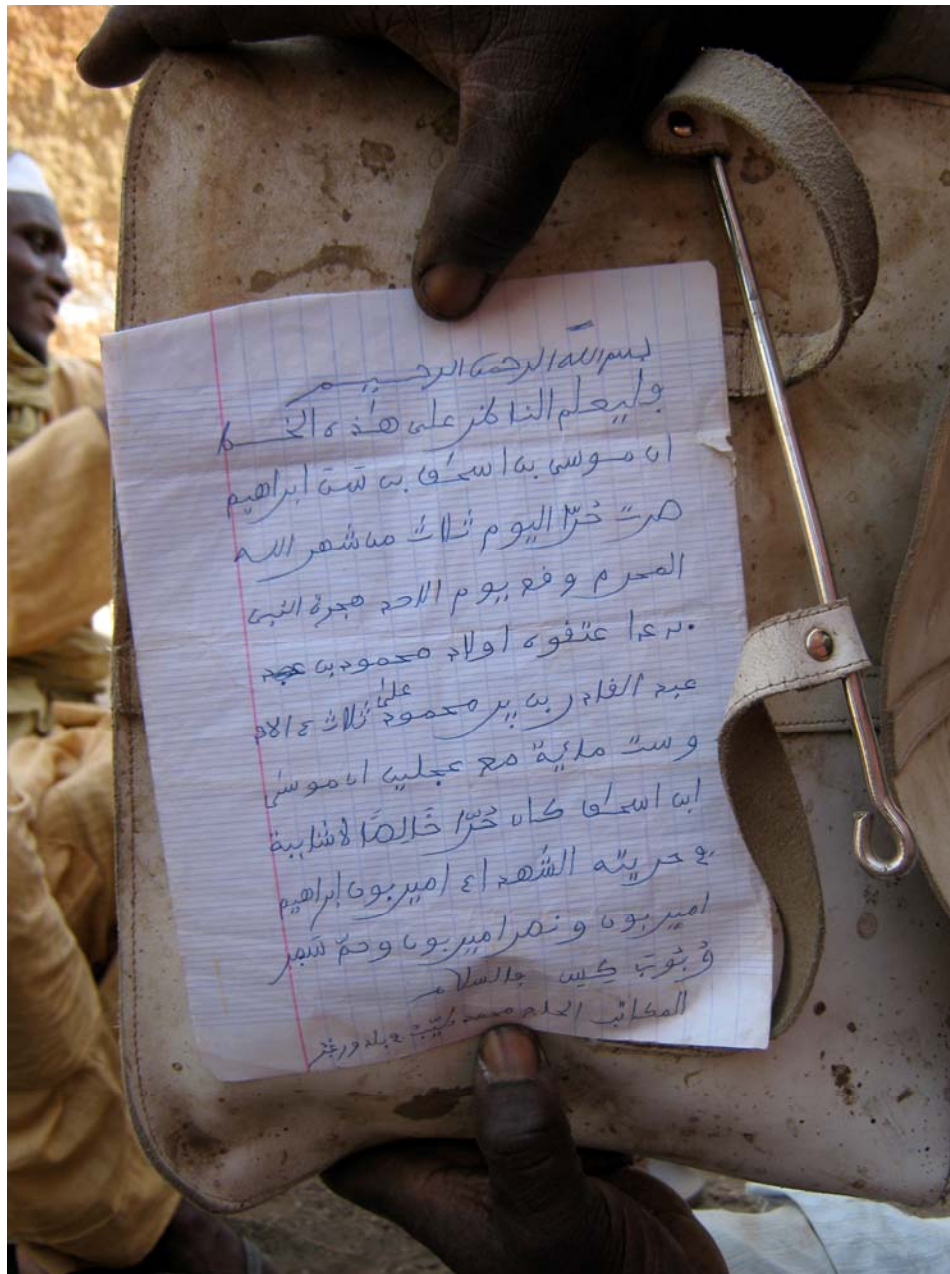 بسم الله الرحمن الرحيم
وليعلم الناظر على هذه الخط
ان موسى بن اسحاق بن ابراهيم
صرت حُرّا اليوم ثلاث من شهر الله
المحرم وقع يوم الاحد هجرة النبي
عتقوه اولاد محمود بن
عبد القادر بن ير محمود على ثلاث
وست مائية مع عجلين ان موسى
ابن اسحاق كان حُرّا خَالِصًا لاشايبة
في حريته الشُهداء امير بون إبراهيم
امير بون و نصر امير بون وحمّ
والسلام
المكاتب محمد بلد